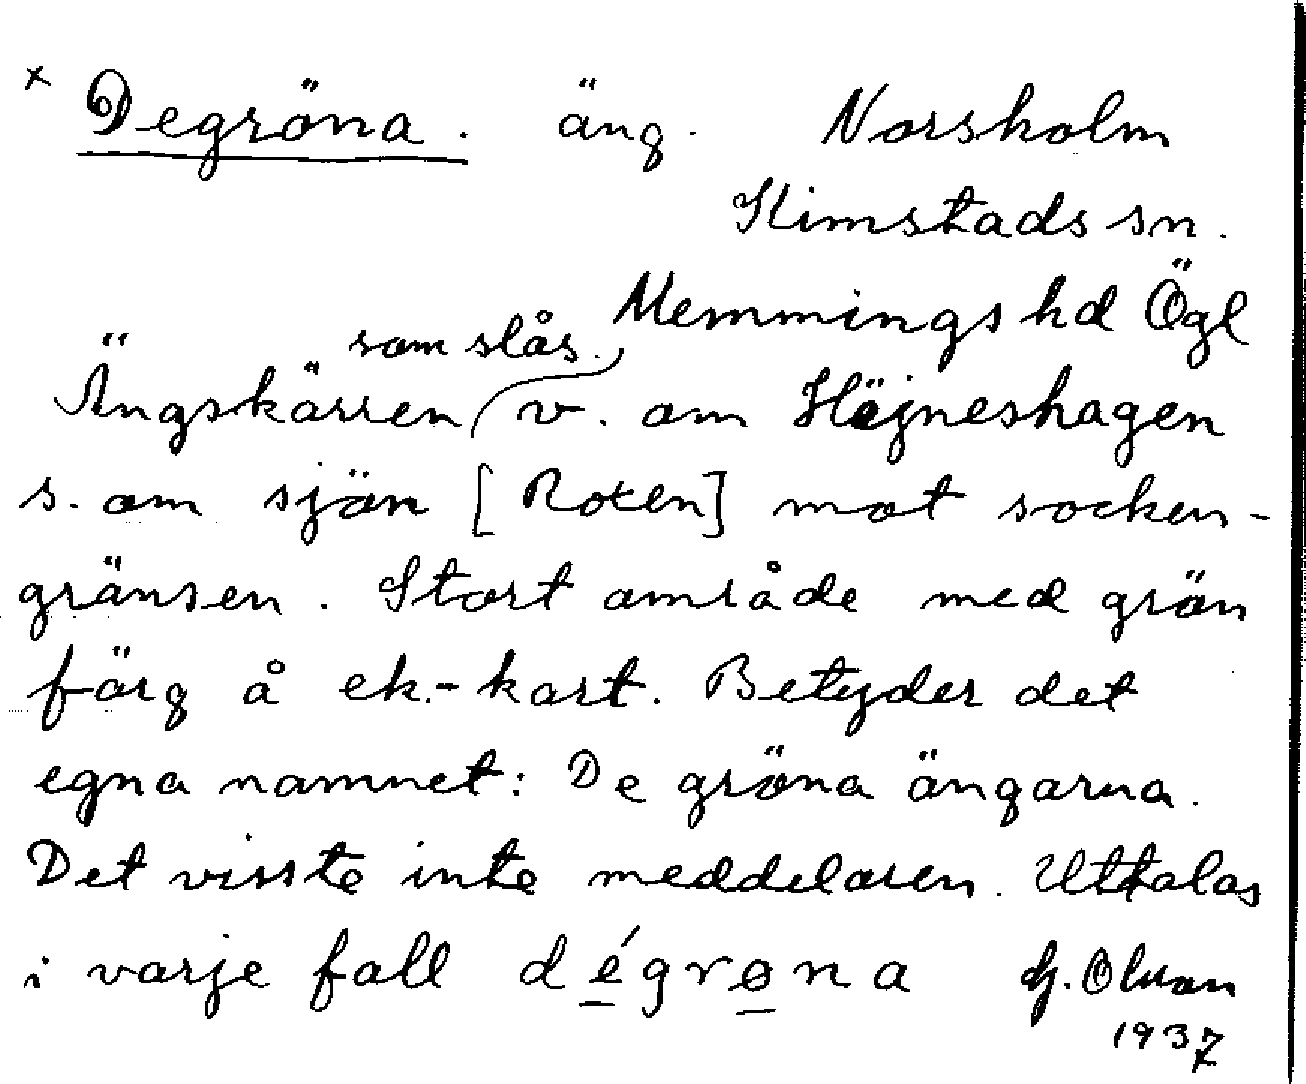 x Degröna. äng. Norsholm
Kimstads sn.
Memmings hd Ögl
som slås.
Ängskärren v. om Höjneshagen
s. om sjön [Roxen] mot socken-
gränsen. Stort område med grön
färg å ek.-kart. Betyder det
egna namnet: De gröna ängarna.
Det visste inte meddelaren. Uttalas
i varje fall dégrøna G. Olson
1937